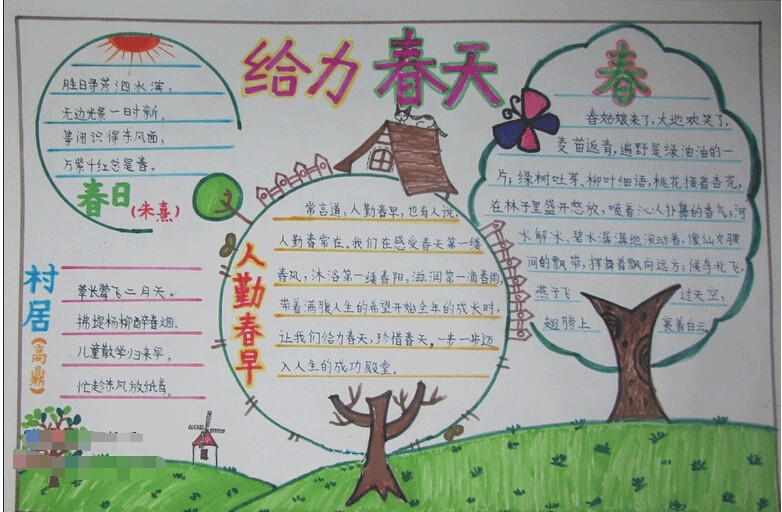 给力春天
胜日寻芳泗水滨,
无边光景一日寸新。
等闲识得东风面,
万紫千红总是春。
春日(朱熹)
村居(高鼎)
草长莺飞二月天。
拂堤杨柳醉春烟。
儿童散学归来早,
忙趁东风放纸鸢。
人勤春早
常言道,人勤春早,也有人说,
人勤春常在。我们在感受春天第一缕
春风,沐浴第一缕春阳,滋润第一滴春雨,
带着满腹人生的希望开始全年的成长时,
让我们给力春天,珍惜春天。一步一步迈
入人生的成功殿堂。
春
春姑娘来了,大地欢笑了,
麦苗返青,遍野是绿油油的一
片;绿树吐芽、柳叶细语,桃花接着杏花,
在林子里盛开怒放,喷着沁人扑鼻的香气;河
水解冰、碧水潺潺地滚动着,像仙女腰
间的飘带,挥舞着飘向远方;候鸟北飞,
燕子飞 过天空,
翅膀上 裹着白云。